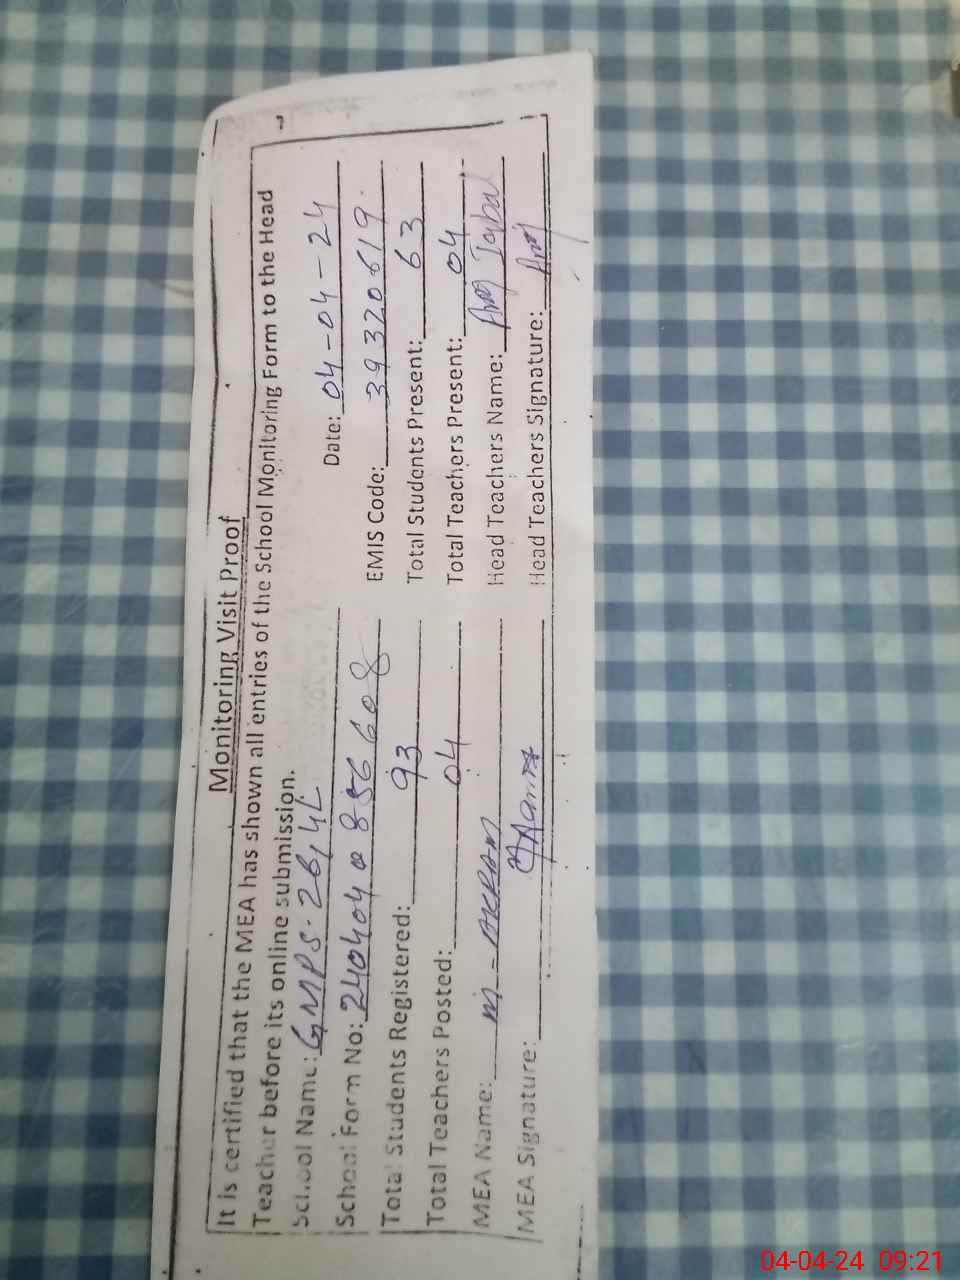 Monitoring Visit Proof
It is certified that the MEA has shown all entries of the School Monitoring Form to the Head
Teacher before its online submission.
School Name: GMPS. 28,4L Date: 04-04-24
School Form No: EMIS Code: 39320619
Total Students Registered: 93 Total Students Present: 63
Total Teachers Posted: 04 Total Teachers Present: 04
MEA Name: M - AKRAM Head Teachers Name: Iqbal
MEA Signature: Head Teachers Signature:
04-04-24 09:21